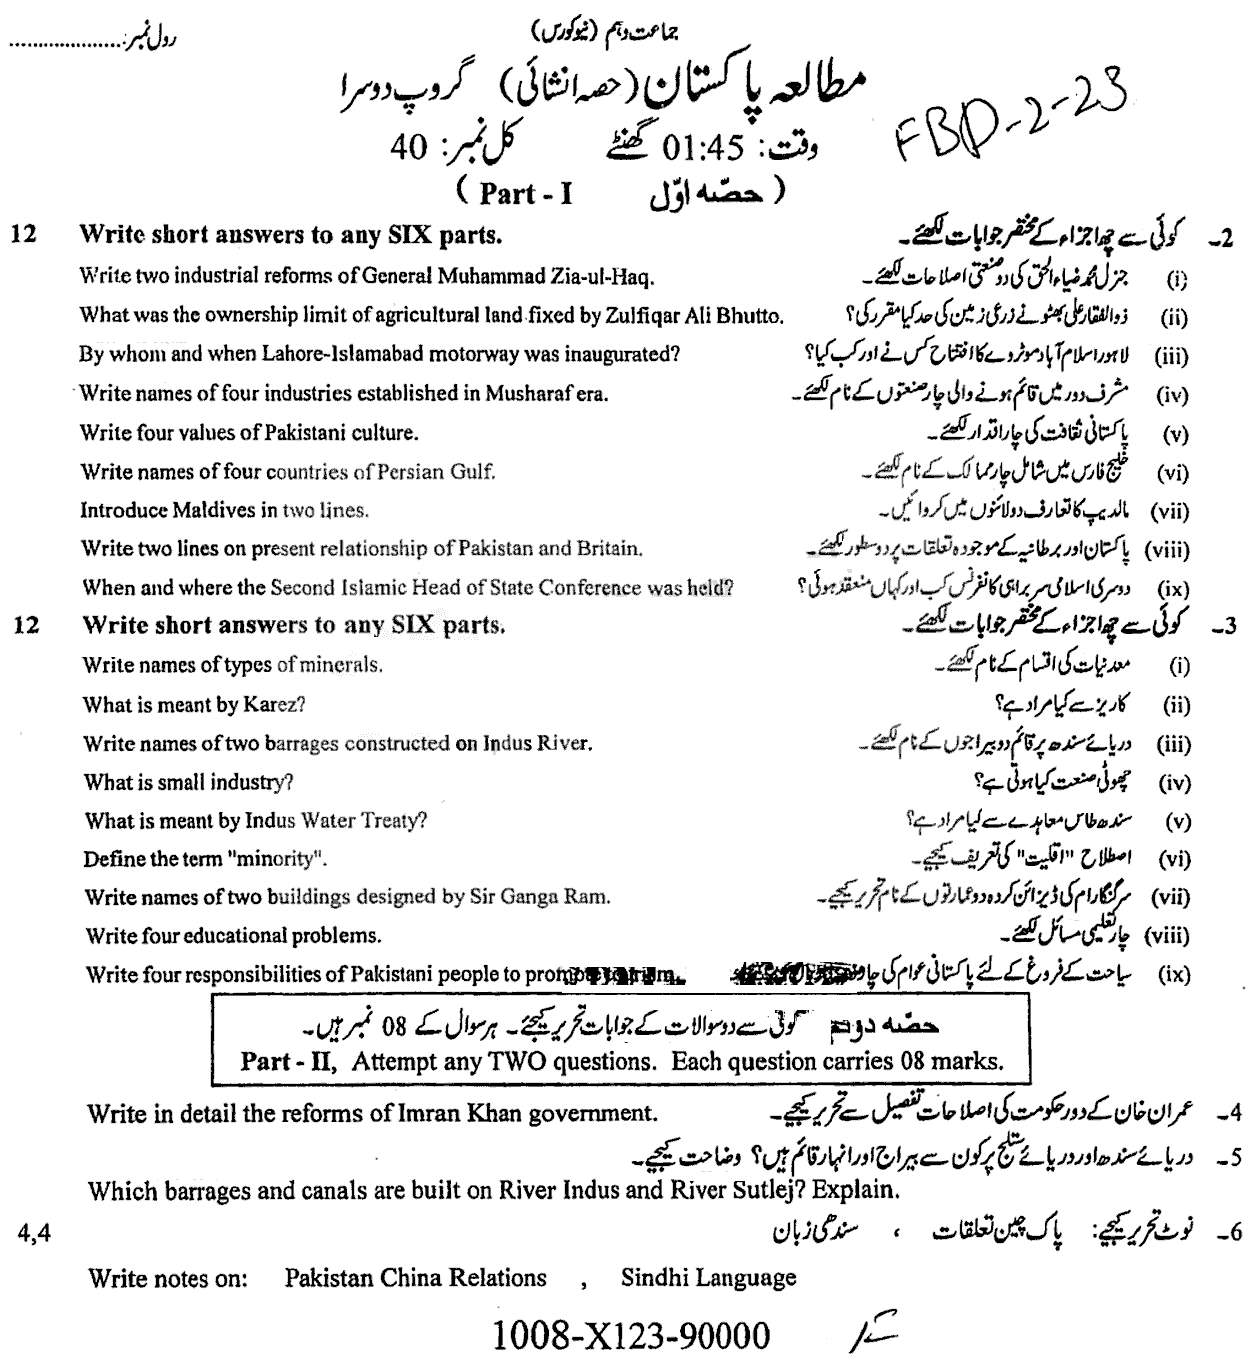 رول نمبر:....................
جماعت دہم (نیوکورس)
مطالعہ پاکستان (حصہ انشائی) گروپ دوسرا
FBD-2-23
وقت: 01:45 گھنٹے کل نمبر: 40
( Part - I حصّہ اوّل )
12 Write short answers to any SIX parts. 2۔ کوئی سے چھ اجزاء کے مختصر جوابات لکھئے۔
Write two industrial reforms of General Muhammad Zia-ul-Haq. (i) جنرل محمد ضیاء الحق کی دو صنعتی اصلاحات لکھئے۔
What was the ownership limit of agricultural land fixed by Zulfiqar Ali Bhutto. (ii) ذوالفقار علی بھٹو نے زرعی زمین کی حد کیا مقرر کی؟
By whom and when Lahore-Islamabad motorway was inaugurated? (iii) لاہور اسلام آباد موٹروے کا افتتاح کس نے اور کب کیا؟
Write names of four industries established in Musharaf era. (iv) مشرف دور میں قائم ہونے والی چار صنعتوں کے نام لکھئے۔
Write four values of Pakistani culture. (v) پاکستانی ثقافت کی چار اقدار لکھئے۔
Write names of four countries of Persian Gulf. (vi) خلیج فارس میں شامل چار ممالک کے نام لکھئے۔
Introduce Maldives in two lines. (vii) مالدیپ کا تعارف دو لائنوں میں کروائیں۔
Write two lines on present relationship of Pakistan and Britain. (viii) پاکستان اور برطانیہ کے موجودہ تعلقات پر دو سطور لکھئے۔
When and where the Second Islamic Head of State Conference was held? (ix) دوسری اسلامی سربراہی کانفرنس کب اور کہاں منعقد ہوئی؟
12 Write short answers to any SIX parts. 3۔ کوئی سے چھ اجزاء کے مختصر جوابات لکھئے۔
Write names of types of minerals. (i) معدنیات کی اقسام کے نام لکھئے۔
What is meant by Karez? (ii) کاریز سے کیا مراد ہے؟
Write names of two barrages constructed on Indus River. (iii) دریائے سندھ پر قائم دو بیراجوں کے نام لکھئے۔
What is small industry? (iv) چھوٹی صنعت کیا ہوتی ہے؟
What is meant by Indus Water Treaty? (v) سندھ طاس معاہدے سے کیا مراد ہے؟
Define the term "minority". (vi) اصطلاح "اقلیت" کی تعریف کیجیے۔
Write names of two buildings designed by Sir Ganga Ram. (vii) سر گنگا رام کی ڈیزائن کردہ دو عمارتوں کے نام تحریر کیجیے۔
Write four educational problems. (viii) چار تعلیمی مسائل لکھئے۔
Write four responsibilities of Pakistani people to promote tourism. (ix) سیاحت کے فروغ کے لئے پاکستانی عوام کی چار
حصّہ دوم کوئی سے دو سوالات کے جوابات تحریر کیجئے۔ ہر سوال کے 08 نمبر ہیں۔
Part - II, Attempt any TWO questions. Each question carries 08 marks.
Write in detail the reforms of Imran Khan government. 4۔ عمران خان کے دور حکومت کی اصلاحات تفصیل سے تحریر کیجیے۔
5۔ دریائے سندھ اور دریائے ستلج پر کون سے بیراج اور انہار قائم ہیں؟ وضاحت کیجیے۔
Which barrages and canals are built on River Indus and River Sutlej? Explain.
4,4 6۔ نوٹ تحریر کیجیے: پاک چین تعلقات ، سندھی زبان
Write notes on: Pakistan China Relations , Sindhi Language
1008-X123-90000